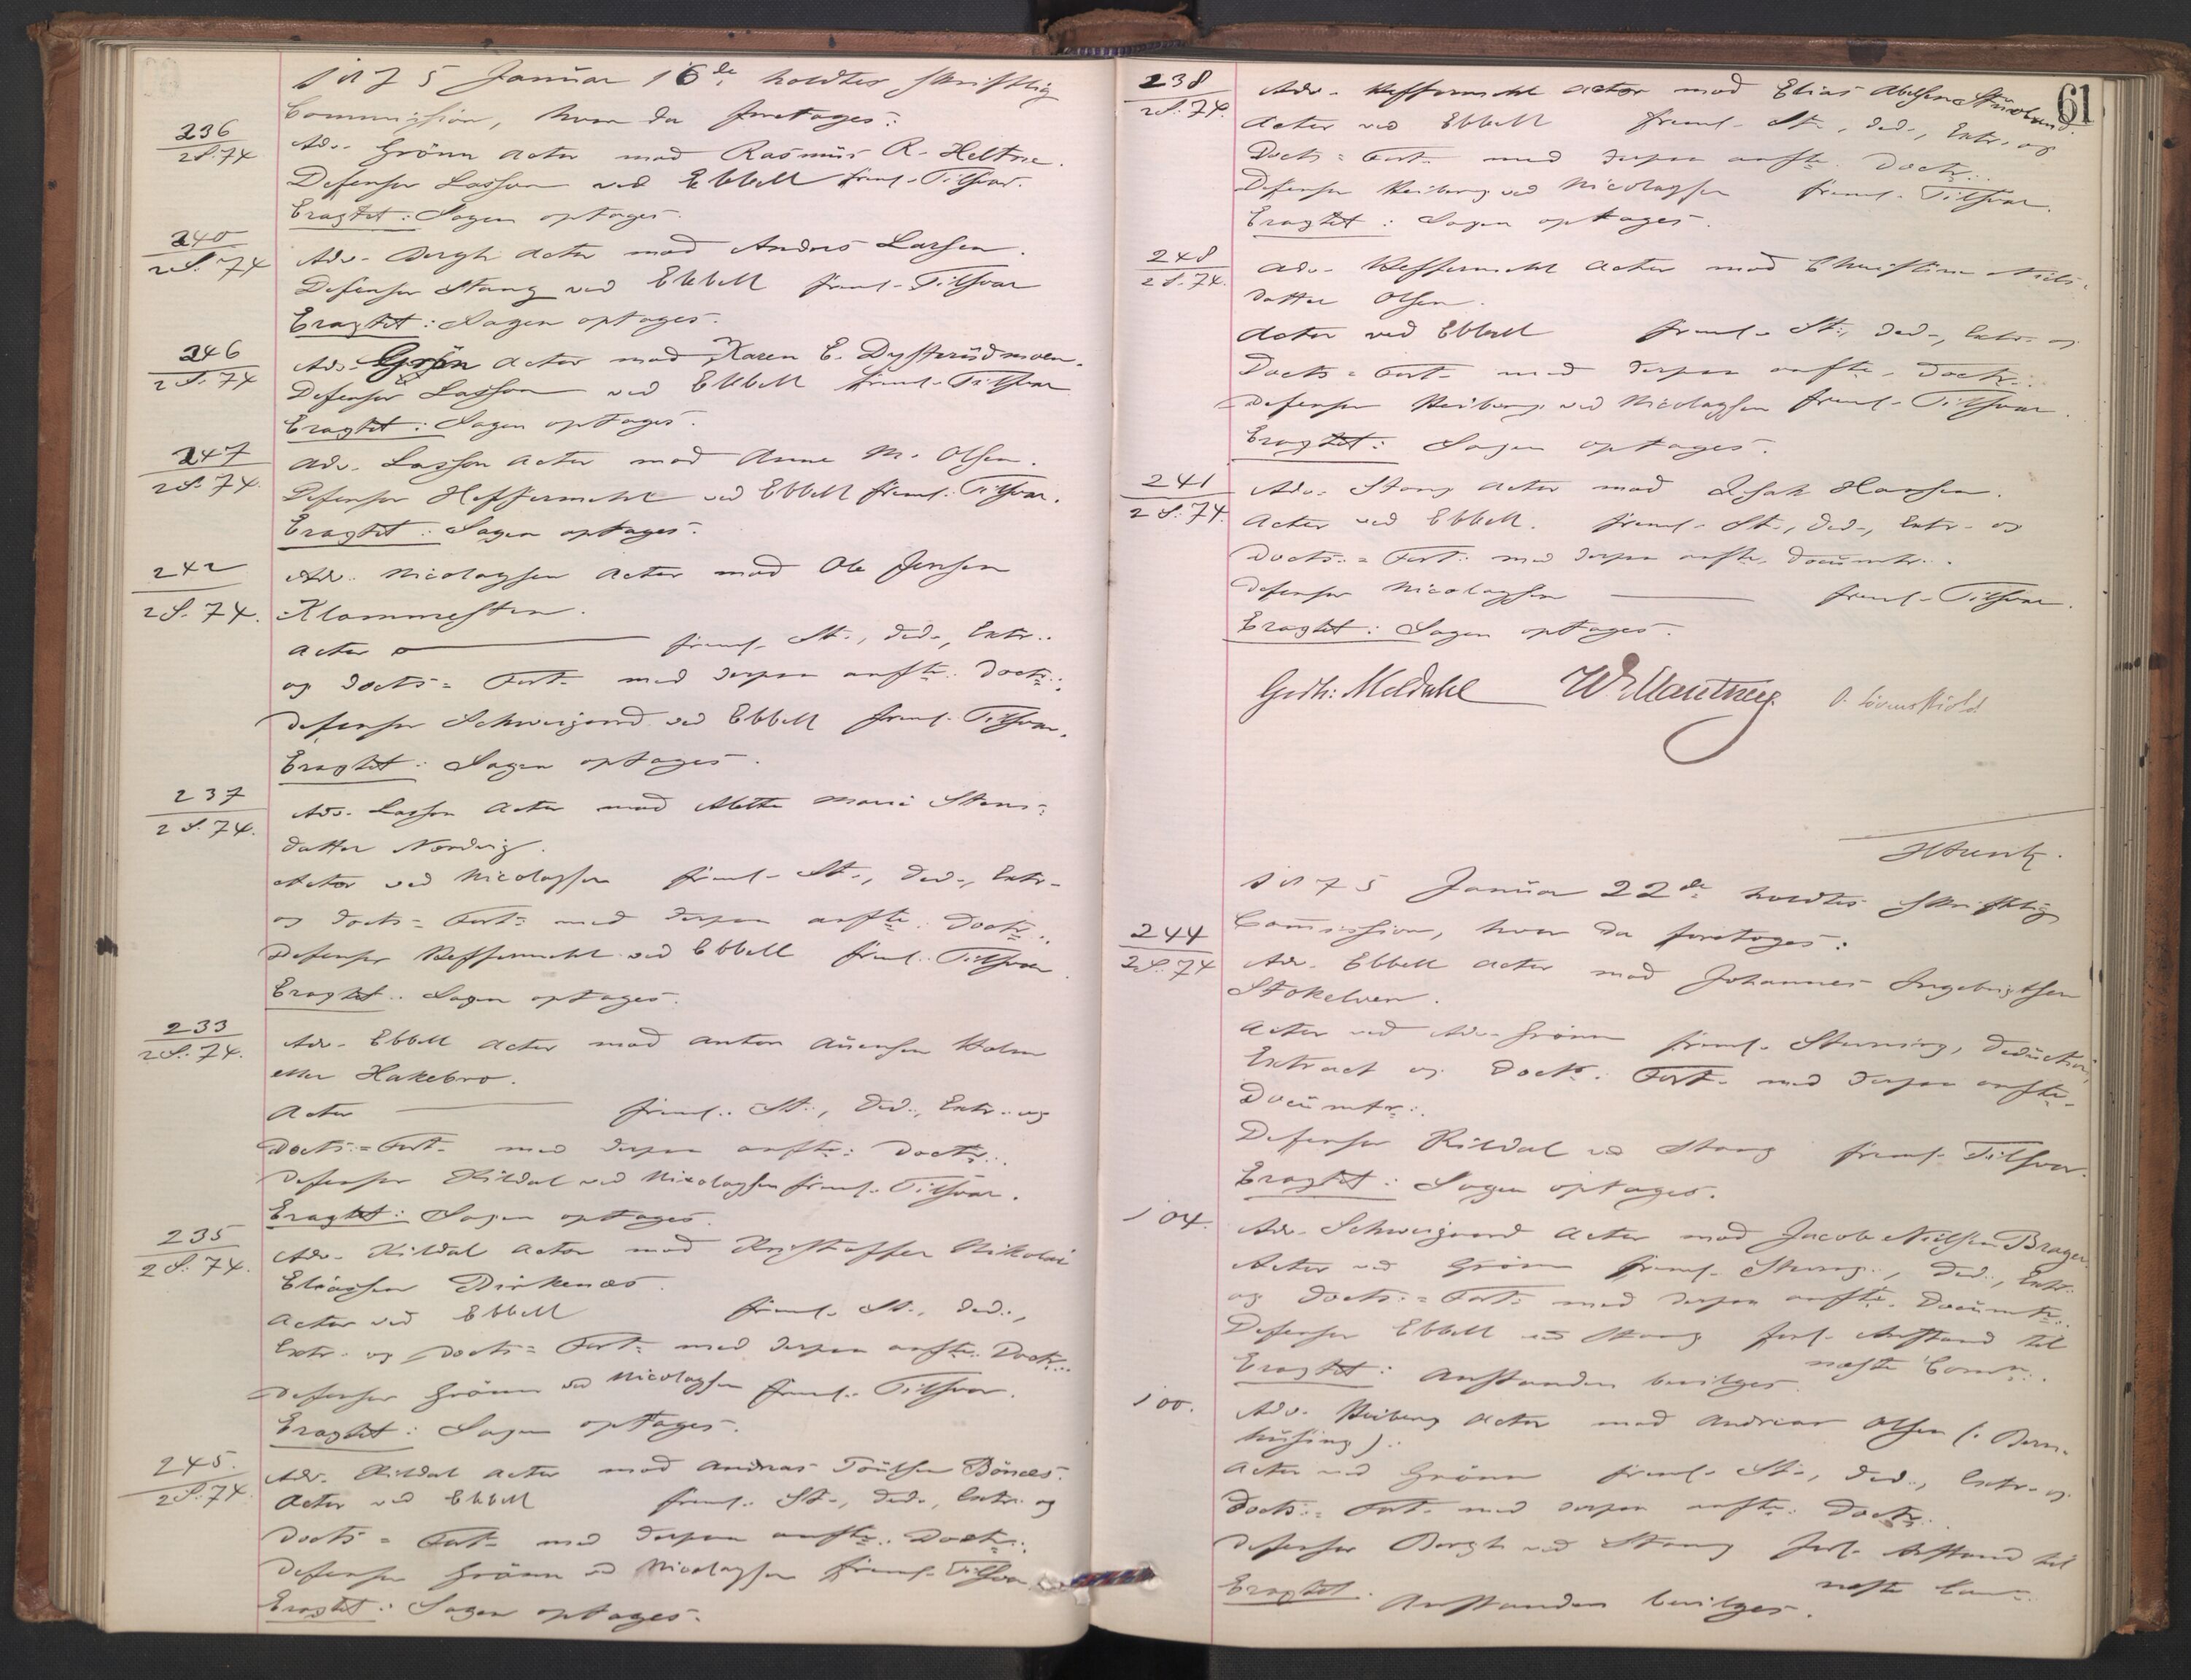 1875 Januar 16de holdtes skriftlig
Commission, hvor da foretoges:
236
2 S. 74
Adv. Grönn Actor mod Rasmus R. Heltne.
Defensor Lasson ved Ebbell freml. Tilsvar.
Eragtet: Sagen optages.
240
2 S. 74
Adv. Bergh Actor mod Anders Larsen.
Defensor Stang ved Ebbell freml. Tilsvar
Eragtet: Sagen optages.
246
2 S. 74
Adv. Grönn Actor mod Karen E. Dysterüdmoen.
Defensor Lasson ved Ebbell freml. Tilsvar
Eragtet: Sagen optages.
247
2 S. 74.
Adv. Lasson Actor mod Anne M. Olsen.
Defensor Heffermehl ved Ebbell freml. Tilsvar.
Eragtet: Sagen optages.
242
2 S. 74.
Adv. Nicolaysen Actor mod Ole Jensen
Klommesten.
Actor freml. St., Ded., Extr.
og Docts= Fort. med derpaa anfte. Doctr.
Defensor Schweigaard ved Ebbell freml. Tilsvar.
Eragtet: Sagen optages.
237
2 S. 74.
Adv. Lasson Actor mod Alette Marie Stens=
datter Nordvig.
Actor ved Nicolaysen freml. St., Ded., Extr.
og Docts= Fort. med derpaa anfte. Doctr.
Defensor Heffermehl ved Ebbell freml. Tilsvar.
Eragtet: Sagen optages.
233
2 S. 74.
Adv. Ebbell Actor mod Anton Auensen Holm
eller Hakebro.
Actor freml. St., Ded., Extr. og
Docts= Fort. med derpaa anfte. Doctr.
Defensor Kildal ved Nicolaysen freml. Tilsvar.
Eragtet: Sagen optages.
235
2 S. 74.
Adv. Kildal Actor mod Kristoffer Nikolai
Eliassen Dirkenæs.
Actor ved Ebbell freml. St., Ded.,
Extr. og Docts= Fort. med derpaa anfte. Doctr.
Defensor Grönn ved Nicolaysen freml. Tilsvar.
Eragtet: Sagen optages.
245.
2 S. 74.
Adv. Kildal Actor mod Andreas Toülsen Bönæs.
Actor ved Ebbell freml. St., Ded., Extr. og
Docts= Fort. med derpaa anfte. Doctr.
Defensor Grönn ved Nicolaysen freml. Tilsvar.
Eragtet: Sagen optages.
61
238
2 S. 74.
Adv. Heffermehl Actor mod Elias Abelsen
Actor ved Ebbell freml. St., Ded., Extr. og
Docts= Fort. med derpaa anfte. Doctr.
Defensor Heiberg ved Nicolaysen freml. Tilsvar.
Eragtet: Sagen optages.
248
2 S. 74.
Adv. Heffermehl Actor mod Christine Niels=
datter Olsen.
Actor ved Ebbell freml. St., Ded., Extr. og
Docts= Fort. med derpaa anfte. Doctr.
Defensor Heiberg ved Nicolaysen freml. Tilsvar.
Eragtet: Sagen optages.
241
2 S. 74.
Adv. Stang Actor mod Isak Hansen.
Actor ved Ebbell. freml. St., Ded., Extr. og
Docts= Fort. med derpaa anfte. Documtr.
Defensor Nicolaysen freml. Tilsvar.
Eragtet: Sagen optages.
Gudbr: Meldahl W Manthey. O. Lövenskiold
1875 Januar 22de holdtes skriftlig
Commission, hvor da foretoges:
244
2 S. 74
Adv. Ebbell Actor mod Johannes Ingebrigtsen
Stokelven.
Actor ved Adv. Grönn freml. Stevning, Deduction,
Extract og Docts. Fort. med derpaa anfte.
Documtr.
Defensor Kildal ved Stang freml. Tilsvar.
Eragtet: Sagen optages.
104.
Adv. Schweigaard Actor mod Jacob Nielsen Brager.
Actor ved Grönn freml. Stevng., Ded., Extr.
og Docts= Fort. med derpaa anfte. Documtr.
Defensor Ebbell ved Stang forl. Anstand til
næste Comm.
Eragtet: Anstanden bevilges.
100.
Adv. Heiberg Actor mod Andreas Olsen (
Actor ved Grönn freml. St., Ded., Extr. og
Docts= Fort. med derpaa anfte. Doctr.
Defensor Bergh ved Stang forl. Anstand til
næste Com.
Eragtet: Anstanden bevilges.